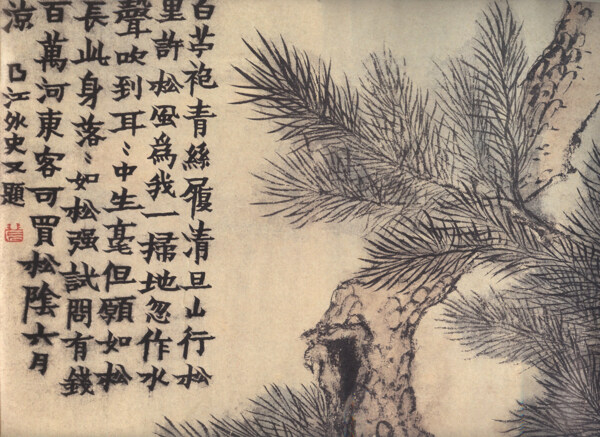 白苧袍青絲履清旦山行松
里許松風爲我一掃地忽作水
聲吹到耳〻中生毫但願如松
長此身落〻如松强試問有錢
百萬河東客可買松陰六月
涼 曲江外史又題